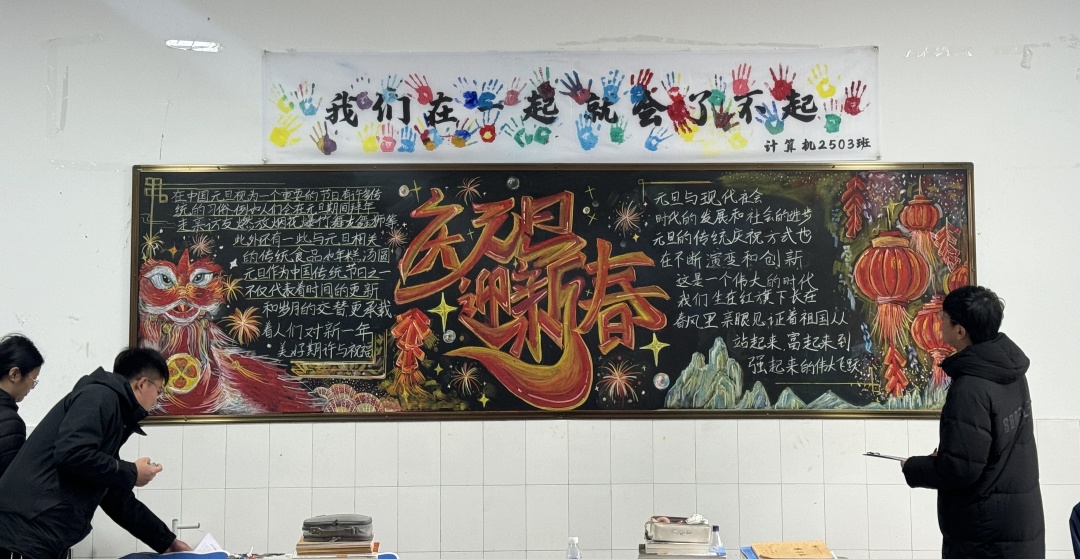 我们在一起就会了不起
计算机2503班
在中国元旦视为一个重要的节日有许多传
统的习俗例如人们会在元旦期间拜年
走亲访友燃放烟花爆竹舞龙舞狮等
此外还有一些与元旦相关
的传统食品如年糕汤圆
元旦作为中国传统节日之一
不仅代表着时间的更新
和岁月的交替更承载
着人们对新一年
美好期许与祝福
庆元旦
迎新春
元旦与现代社会
时代的发展和社会的进步
元旦的传统庆祝方式也
在不断演变和创新
这是一个伟大的时代
我们生在红旗下长在
春风里亲眼见证着祖国从
站起来富起来到
强起来的伟大飞跃